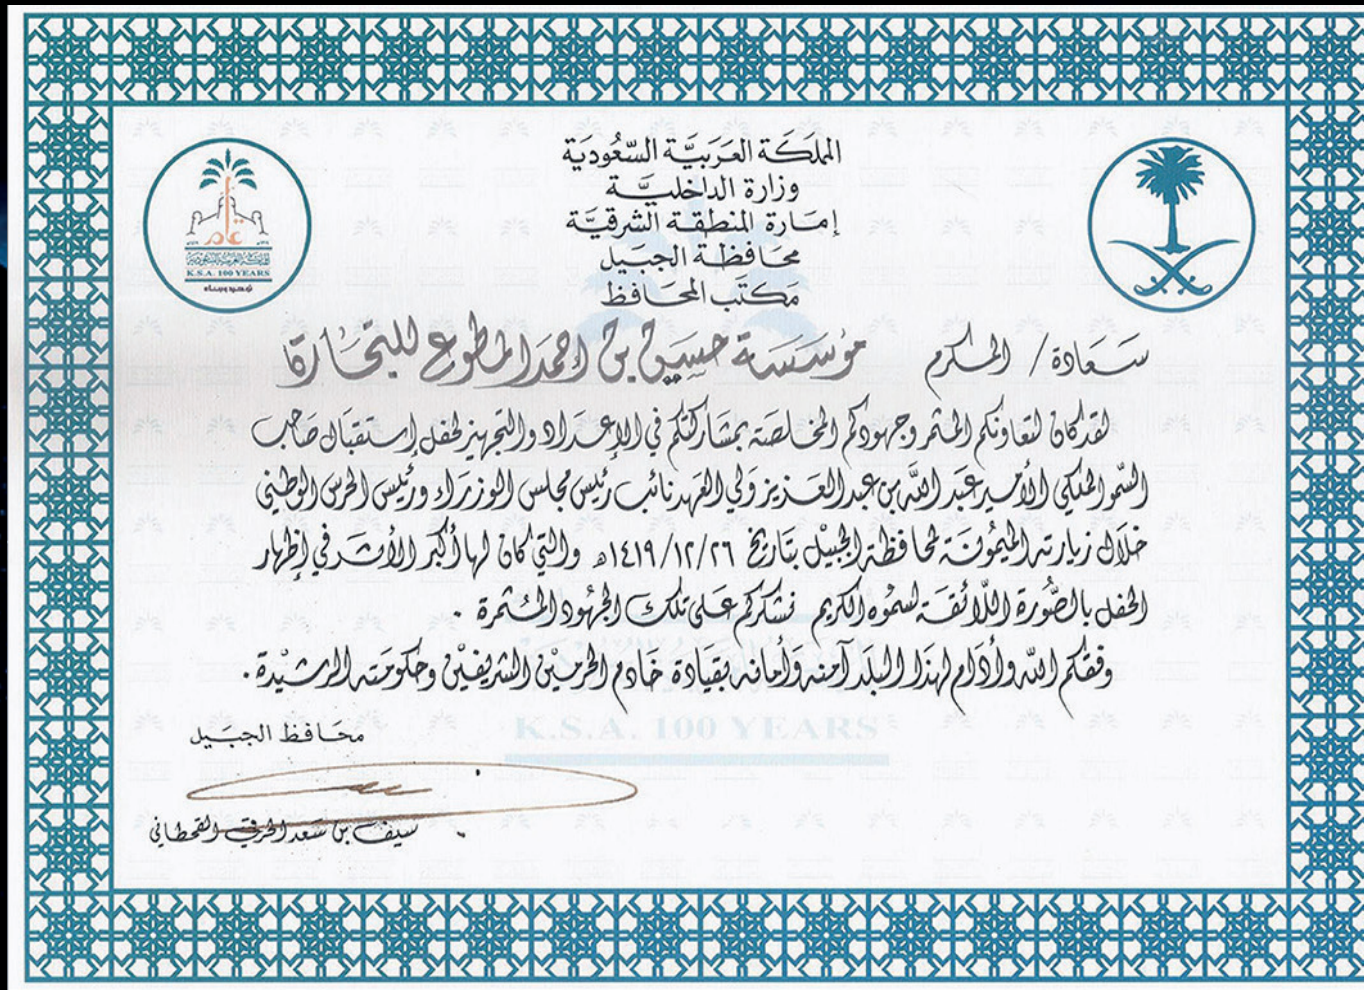 المملكة العربية السعودية
وزارة الداخلية
إمارة المنطقة الشرقية
محافظة الجبيل
مكتب المحافظ
عام
K.S.A. 100 YEARS
توحيد وبناء
سعادة / المكرم مؤسسة حسين بن احمد المطوع للتجارة
لقد كان لتعاونكم المثمر وجهودكم المخلصة بمشاركتكم في الإعداد والتجهيز لحفل إستقبال صاحب
السمو الملكي الأمير عبد الله بن عبد العزيز ولي العهد نائب رئيس مجلس الوزراء ورئيس الحرس الوطني
خلال زيارته الميمونة لمحافظة الجبيل بتاريخ ١٤١٩/١٢/٢٦هـ والتي كان لها أكبر الأثر في إظهار
الحفل بالصورة اللائقة لسموه الكريم نشكركم على تلك الجهود المثمرة .
وفقكم الله وأدام لهذا البلد آمنه وأمانه بقيادة خادم الحرمين الشريفين وحكومته الرشيدة .
K.S.A. 100 YEARS
محافظ الجبيل
سيف بن سعد القحطاني